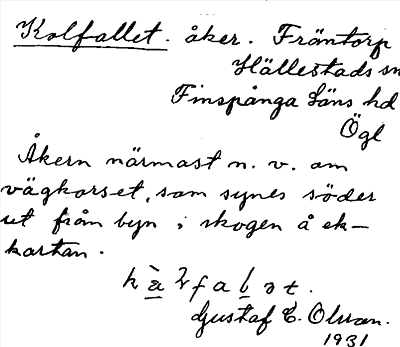 Kolfallet. åker. Främtorp
Hällestads sn
Finspånga Läns hd
Ögl
Åkern närmast n. v. om
vägkorset, som synes söder
ut från byn i skogen å ek-
kartan.
Gustaf E. Olsson.
1931